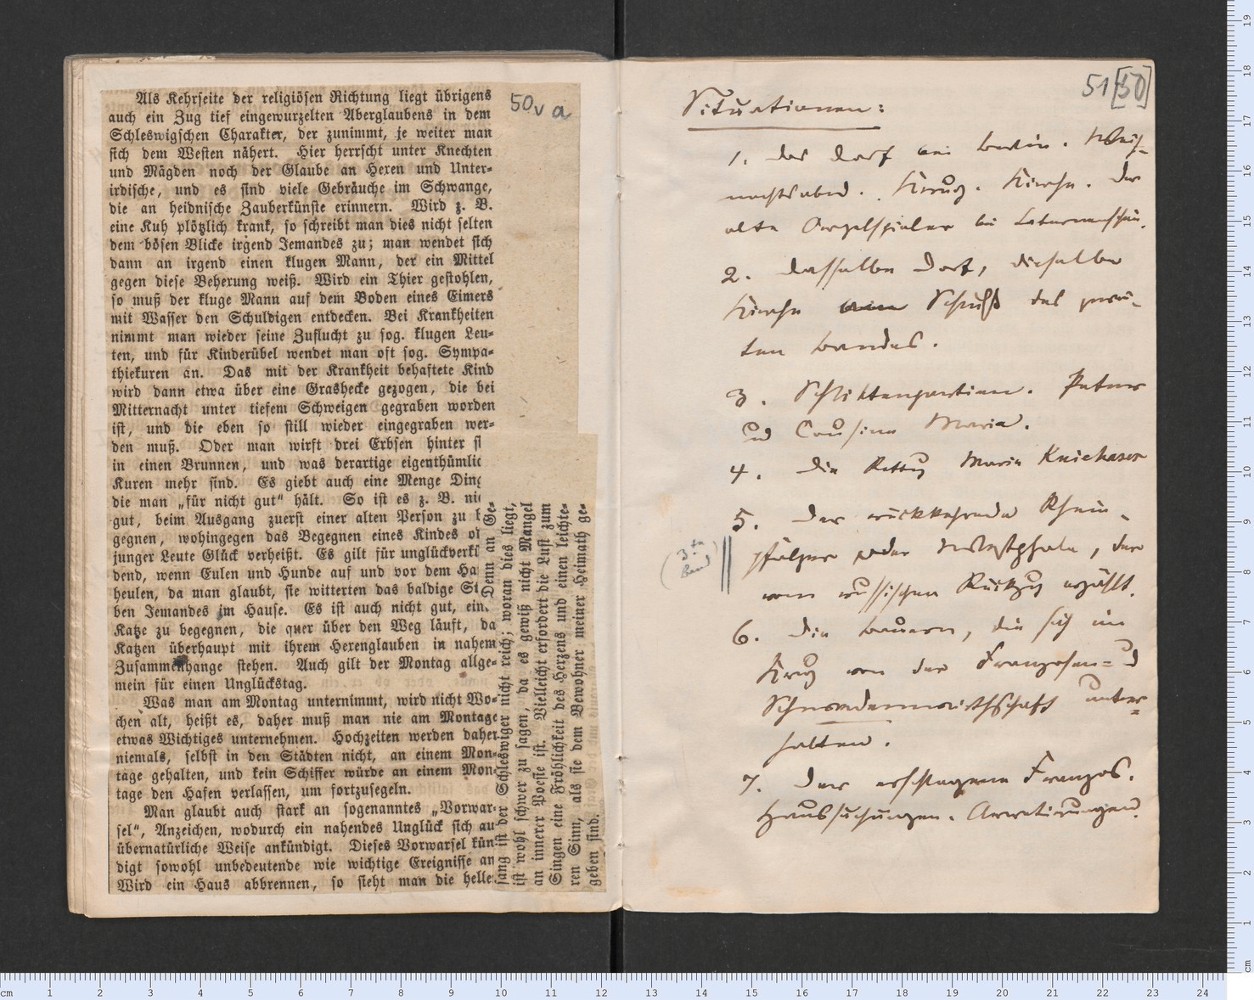 Als Kehrseite der religiösen Richtung liegt übrigens
auch ein Zug tief eingewurzelten Aberglaubens in dem
Schleswigschen Charakter, der zunimmt, je weiter man
sich dem Westen nähert. Hier herrscht unter Knechten
und Mägden noch der Glaube an Hexen und Unter-
irdische, und es sind viele Gebräuche im Schwange,
die an heidnische Zauberkünste erinnern. Wird z. B.
eine Kuh plötzlich krank, so schreibt man dies nicht selten
dem bösen Blicke irgend Jemandes zu; man wendet sich
dann an irgend einen klugen Mann, der ein Mittel
gegen diese Behexung weiß. Wird ein Thier gestohlen,
so muß der kluge Mann auf dem Boden eines Eimers
mit Wasser den Schuldigen entdecken. Bei Krankheiten
nimmt man wieder seine Zuflucht zu sog. klugen Leu-
ten, und für Kinderübel wendet man oft sog. Sympa-
thiekuren an. Das mit der Krankheit behaftete Kind
wird dann etwa über eine Grashecke gezogen, die bei
Mitternacht unter tiefem Schweigen gegraben worden
ist, und die eben so still wieder eingegraben wer-
den muß. Oder man wirft drei Erbsen hinter si
in einen Brunnen, und was derartige eigenthümlic
Kuren mehr sind. Es giebt auch eine Menge Ding
die man „für nicht gut“ hält. So ist es z. B. nic
gut, beim Ausgang zuerst einer alten Person zu b
gegnen, wohingegen das Begegnen eines Kindes od
junger Leute Glück verheißt. Es gilt für unglückverkü
dend, wenn Eulen und Hunde auf und vor dem Ha
heulen, da man glaubt, sie witterten das baldige St
ben Jemandes im Hause. Es ist auch nicht gut, ein
Katze zu begegnen, die quer über den Weg läuft, da
Katzen überhaupt mit ihrem Hexenglauben in nahem
Zusammenhange stehen. Auch gilt der Montag allge-
mein für einen Unglückstag.
Was man am Montag unternimmt, wird nicht Wo-
chen alt, heißt es, daher muß man nie am Montage
etwas Wichtiges unternehmen. Hochzeiten werden daher
niemals, selbst in den Städten nicht, an einem Mon-
tage gehalten, und kein Schiffer würde an einem Mon-
tage den Hafen verlassen, um fortzusegeln.
Man glaubt auch stark an sogenanntes „Vorwar-
sel“, Anzeichen, wodurch ein nahendes Unglück sich au
übernatürliche Weise ankündigt. Dieses Vorwarsel kün
digt sowohl unbedeutende wie wichtige Ereignisse an
Wird ein Haus abbrennen, so sieht man die helle
Denn an Ge-
sang ist der Schleswiger nicht reich; woran dies liegt,
ist wohl schwer zu sagen, da es gewiß nicht Mangel
an innerer Poesie ist. Vielleicht erfordert die Lust zum
Singen eine Fröhlichkeit des Herzens und einen leichte-
ren Sinn, als sie dem Bewohner meiner Heimath ge-
geben sind.
50v a
51 [50]
Situationen:
1. Das Dorf bei Berlin. Weih-
nachtsabend. Krug. Kirche. Der
alte Orgelspieler bei Laternenschein.
2. Dasselbe Dorf, dieselbe
Kirche Schluß des zwei-
ten Bandes.
3. Schlittenpartieen. Putner
und Cousine Maria.
4. Die Rettung Marie Kniehases
5. Der rückkehrende Rhein-
pfälzer oder Westphale, der
vom russischen Rückzug erzählt.
(3ter Band)
6. Die Bauern, die sich im
Krug von der Franzosen- und
Schwedenwirthschaft unter-
halten.
7. Der erschlagene Franzos.
Haussuchungen. Arretirungen.